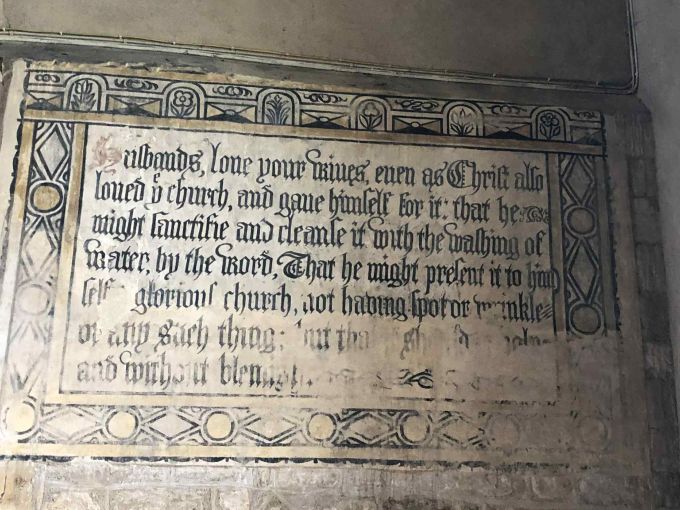 Husbands, loue your wiues, euen as Christ also
loued yͤ church, and gaue himself for it: that he
might sanctifie and cleanse it with the washing of
water, by the word, That he might present it to him
self glorious church, not hauing spot or wrinkle
or any such thing: but that
and without blemish